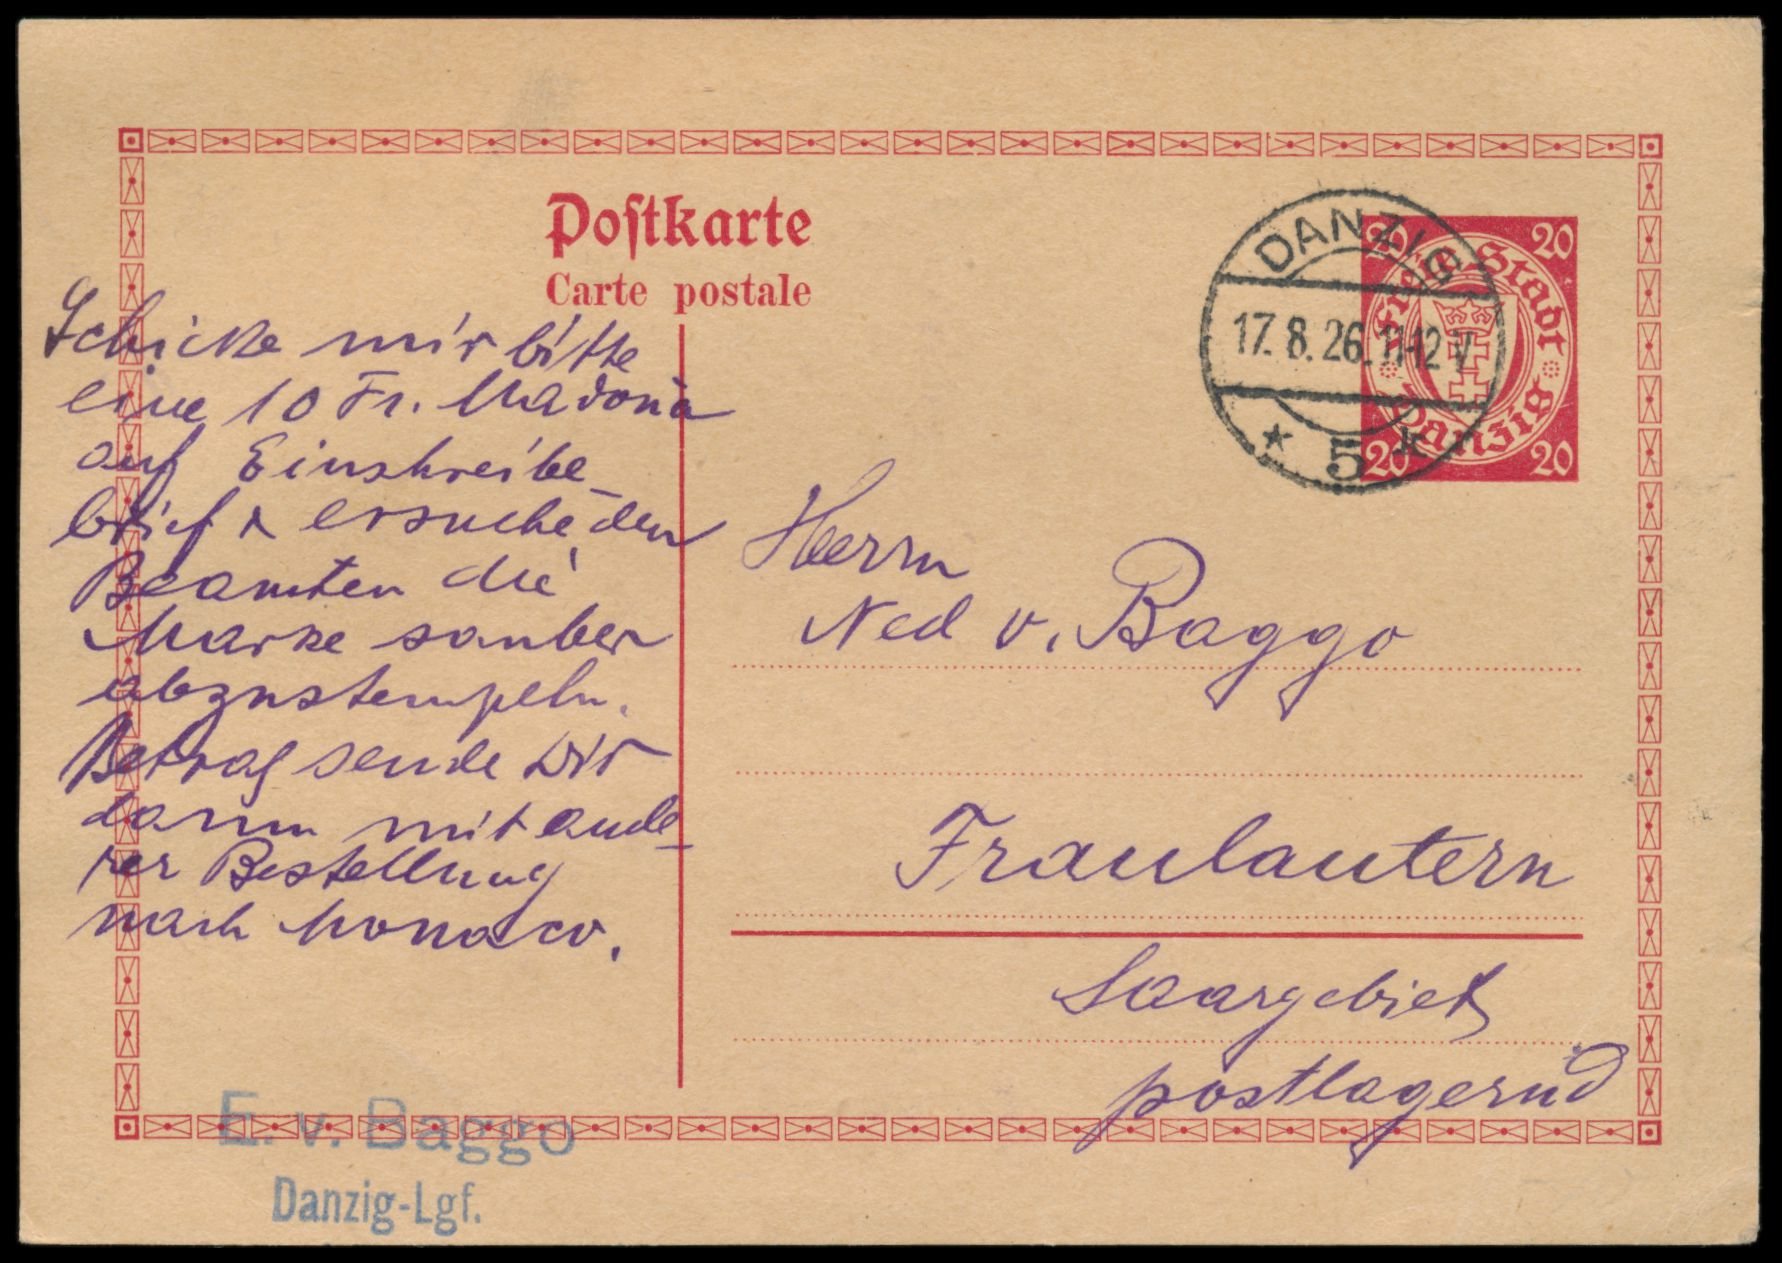 Postkarte
Carte postale
DANZIG
17.8.26.11-12 V
* 5 k
20 20
Freie Stadt Danzig
20 20
Schicke mir bitte
eine 10 Fr. Madona
auf Einschreibe-
brief & ersuche den
Beamten die
Marke sauber
abzustempeln.
Betrag sende Dir
dann mit ande-
rer Bestellung
nach Monaco.
Herrn
Ned v. Baggo
Fraulautern
Saargebiet
postlagernd
E. v. Baggo
Danzig-Lgf.